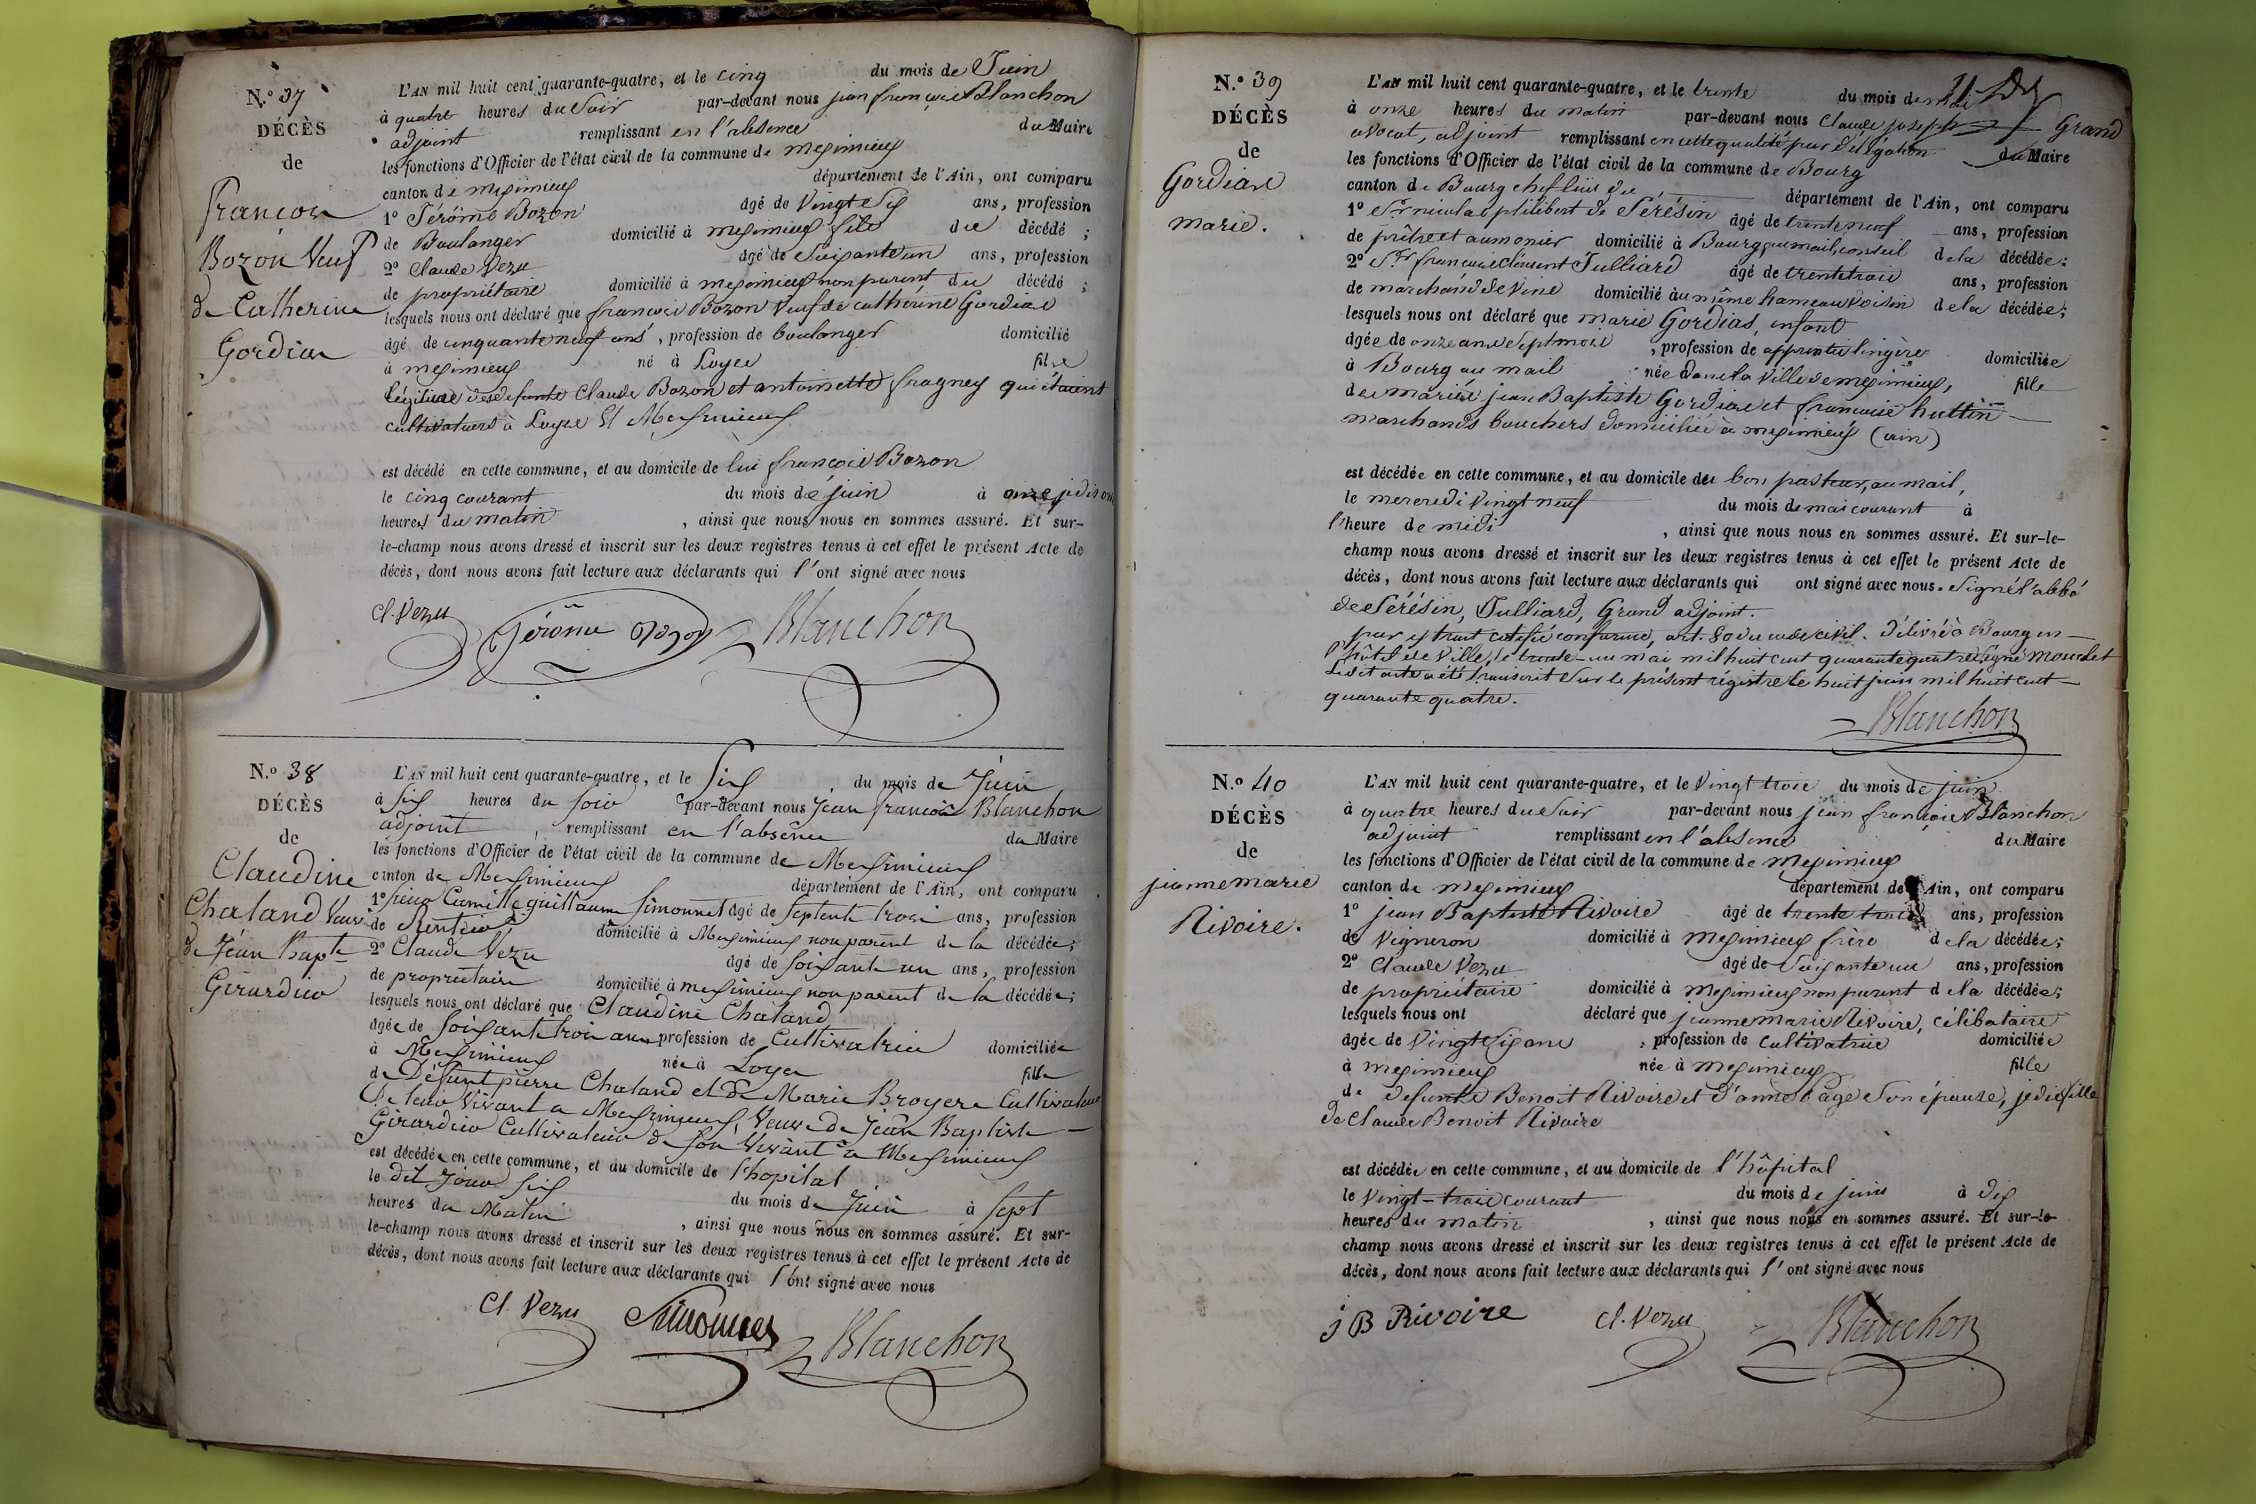 N.º 37
DÉCÈS
de
françois
Bozon Veuf
de Catherine
Gordian
L'AN mil huit cent quarante-quatre, et le cinq du mois de Juin
à quatre heures du Soir par-devant nous jean françois Blanchon
adjoint remplissant en l'absence du Maire
les fonctions d'Officier de l'état civil de la commune de meximieux
canton de meximieux département de l'Ain, ont comparu
1º Jérôme Bozon âgé de Vingt Six ans, profession
de Boulanger domicilié à meximieux fils du décédé ;
2º Claude Vezu âgé de Soixante un ans, profession
de propriétaire domicilié à meximieux non parent du décédé ;
lesquels nous ont déclaré que françois Bozon Veuf de catherine Gordian
âgé de cinquante neuf ans, profession de boulanger domicilié
à meximieux né à Loyes fils
légitime des defunts Claude Bozon et antoinette fragney qui étaient
cultivateurs à Loyes Et Meximieux
est décédé en cette commune, et au domicile de lui françois Bozon
le cinq courant du mois de juin à onze je dis onze
heures du matin, ainsi que nous nous en sommes assuré. Et sur-
le-champ nous avons dressé et inscrit sur les deux registres tenus à cet effet le présent Acte de
décès, dont nous avons fait lecture aux déclarants qui l'ont signé avec nous
Cl. Vezu Jérôme Bozon Blanchon
N.º 38
DÉCÈS
de
Claudine
Chaland Veuve
de Jean Bapte
Girardier
L'AN mil huit cent quarante-quatre, et le Six du mois de Juin
à Six heures du soir par-devant nous Jean François Blanchon
adjoint, remplissant en l'absence du Maire
les fonctions d'Officier de l'état civil de la commune de Meximieux
canton de Meximieux département de l'Ain, ont comparu
1º sieur Camille guillaume Simonnet âgé de Septente trois ans, profession
de Rentier domicilié à Meximieux non parent de la décédée;
2º Claude Vezu âgé de soixante un ans, profession
de propriétaire domicilié à meximieux non parent de la décédée;
lesquels nous ont déclaré que Claudine Chaland
âgée de soixante trois ans profession de Cultivatrice domiciliée
à Meximieux née à Loyes fille
de Défunt pierre Chaland et de Marie Broyere Cultivateurs
de leur Vivant a Meximieux, Veuve de Jean Baptiste
Girardier Cultivateur de son Vivant a Meximieux
est décédée en cette commune, et au domicile de l'hopital
le dit Jour Six du mois de Juin à sept
heures du Matin, ainsi que nous nous en sommes assuré. Et sur-
le-champ nous avons dressé et inscrit sur les deux registres tenus à cet effet le présent Acte de
décès, dont nous avons fait lecture aux déclarants qui l'ont signé avec nous
Cl. Vezu Simonnet Blanchon
N.º 39
DÉCÈS
de
Gordian
marie.
L'AN mil huit cent quarante-quatre, et le trente du mois de mai
à onze heures du matin par-devant nous Claude joseph Grand
avocat, adjoint remplissant en cette qualité par délégation du Maire
les fonctions d'Officier de l'état civil de la commune de Bourg
canton de Bourg chef lieu du département de l'Ain, ont comparu
1º Sr. nicolas philibert de Sérésin âgé de trente neuf ans, profession
de prêtre et aumonier domicilié à Bourg au mail, conseil de la décédée;
2º Sr. françois Clément Julliard âgé de trente trois ans, profession
de marchand de vins domicilié au même hameau voisin de la décédée;
lesquels nous ont déclaré que marie Gordian, enfant
âgée de onze ans Sept mois, profession de apprentie lingère domiciliée
à Bourg au mail née dans la Ville de meximieux, fille
des mariés jean Baptiste Gordian et françoise huttin
marchands bouchers domiciliés à meximieux (ain)
est décédée en cette commune, et au domicile du bon pasteur, au mail,
le mercredi vingt neuf du mois de mai courant à
l'heure de midi, ainsi que nous nous en sommes assuré. Et sur-le-
champ nous avons dressé et inscrit sur les deux registres tenus à cet effet le présent Acte de
décès, dont nous avons fait lecture aux déclarants qui ont signé avec nous. Signé l'abbé
de Sérésin, Julliard, Grand adjoint.
pour extrait certifié conforme, art. 80 du code civil. Délivré à Bourg en
l'hôtel de Ville, le trente-un mai mil huit cent quarante quatre. Signé Mouchet
Ledit acte a été transcrit Sur le présent registre le huit juin mil huit cent
quarante quatre.
Blanchon
N.º 40
DÉCÈS
de
jeanne marie
Rivoire.
L'AN mil huit cent quarante-quatre, et le Vingt trois du mois de juin
à quatre heures du Soir par-devant nous jean françois Blanchon
adjoint remplissant en l'absence du Maire
les fonctions d'Officier de l'état civil de la commune de meximieux
canton de meximieux département de l'Ain, ont comparu
1º jean Baptiste Rivoire âgé de trente trois ans, profession
de Vigneron domicilié à meximieux frère de la décédée;
2º Claude Vezu âgé de Soixante un ans, profession
de propriétaire domicilié à meximieux non parent de la décédée;
lesquels nous ont déclaré que jeanne marie Rivoire, célibataire
âgée de Vingt Six ans, profession de cultivatrice domiciliée
à meximieux née à meximieux fille
de defunts Benoit Rivoire et d'anne Page Son épouse, je dis fille
de Claude Benoit Rivoire
est décédée en cette commune, et au domicile de l'hôpital
le Vingt-trois courant du mois de juin à dix
heures du matin, ainsi que nous nous en sommes assuré. Et sur-le-
champ nous avons dressé et inscrit sur les deux registres tenus à cet effet le présent Acte de
décès, dont nous avons fait lecture aux déclarants qui l'ont signé avec nous
j B Rivoire Cl. Vezu Blanchon